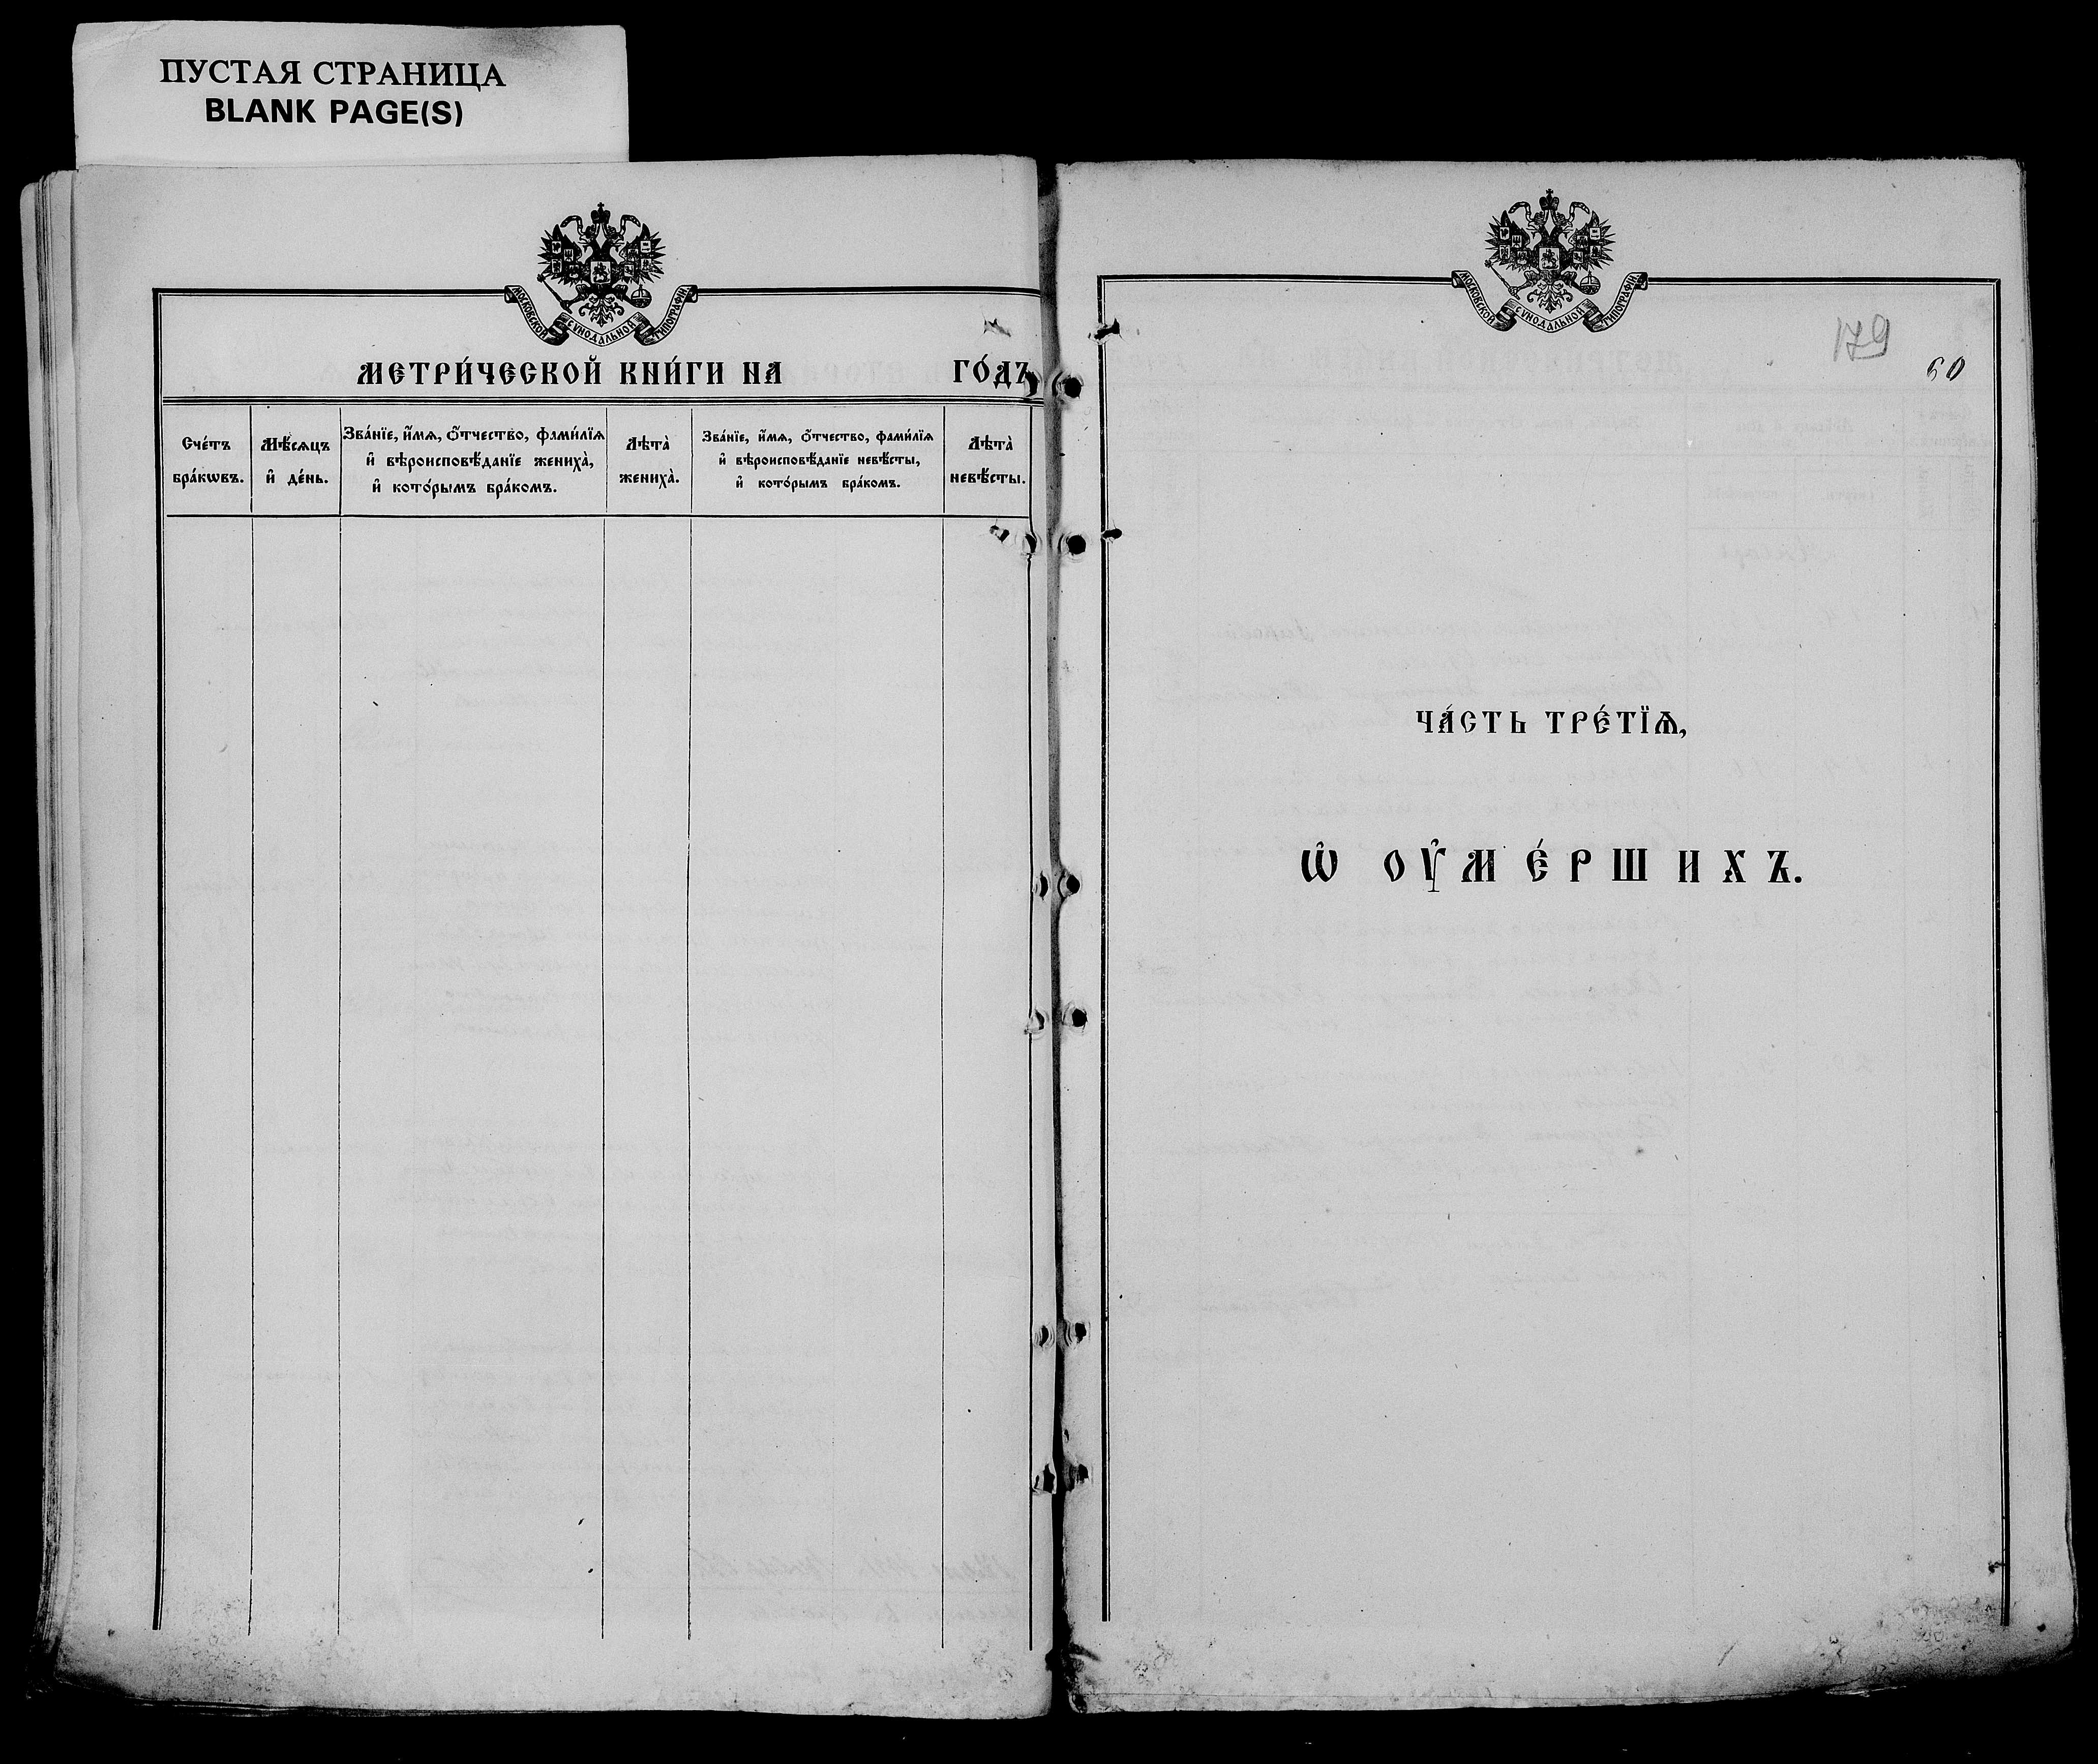 ПУСТАЯ СТРАНИЦА
BLANK PAGE(S)
МОСКОВСКОЙ СѴНОДАЛЬНОЙ ТИПОГРАФІИ
МЕТРИ́ЧЕСКОЙ КНИ́ГИ НА ГО́ДЪ
Сче́тъ бра́кѡвъ.
Мѣ́сяцъ и҆ де́нь.
Зва́нїе, и҆́мѧ, ѻ҆́тчество, фами́лїѧ
и҆ вѣроисповѣ́данїе жениха̀,
и҆ кото́рымъ бра́комъ.
Лѣта̀ жениха̀.
Зва́нїе, и҆́мѧ, ѻ҆́тчество, фами́лїѧ
и҆ вѣроисповѣ́данїе невѣ́сты,
и҆ кото́рымъ бра́комъ.
Лѣта̀ невѣ́сты.
МОСКОВСКОЙ СѴНОДАЛЬНОЙ ТИПОГРАФІИ
179
60
ЧА́СТЬ ТРЕ́ТЇѦ,
Ѡ҆ ОУ҆МЕ́РШИХЪ.